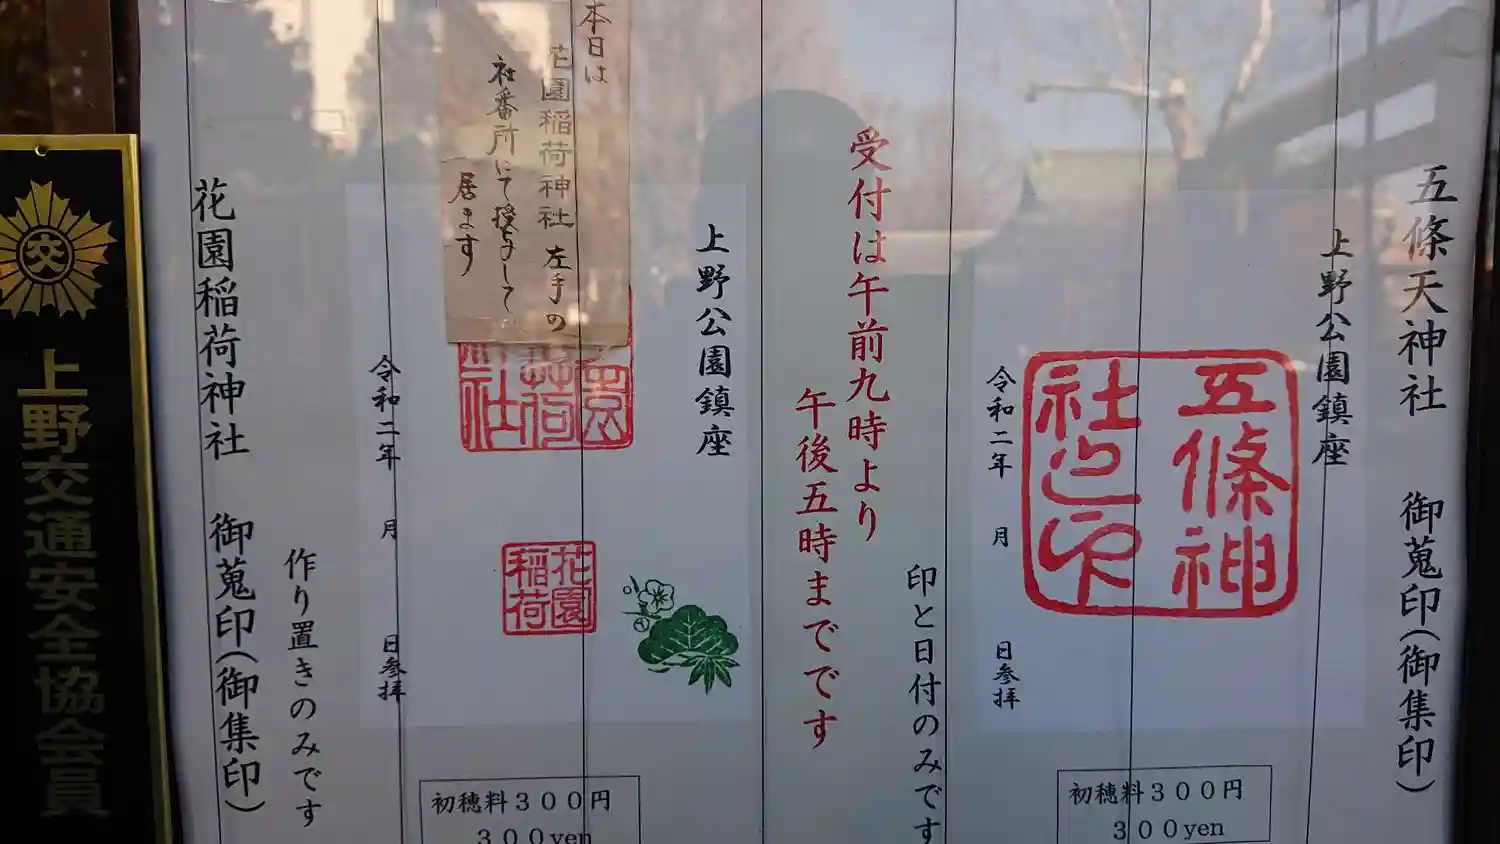 五條天神社 御蒐印(御集印)
上野公園鎮座
五條神
社之印
令和二年 月 日参拝
印と日付のみです
初穂料300円
300yen
受付は午前九時より
午後五時までです
上野公園鎮座
本日は
花園稲荷神社 左手の
社番所にて授与して
居ます
荷
社
花園
稲荷
令和二年 月 日参拝
作り置きのみです
初穂料300円
300yen
花園稲荷神社 御蒐印(御集印)
交
上野交通安全協会員